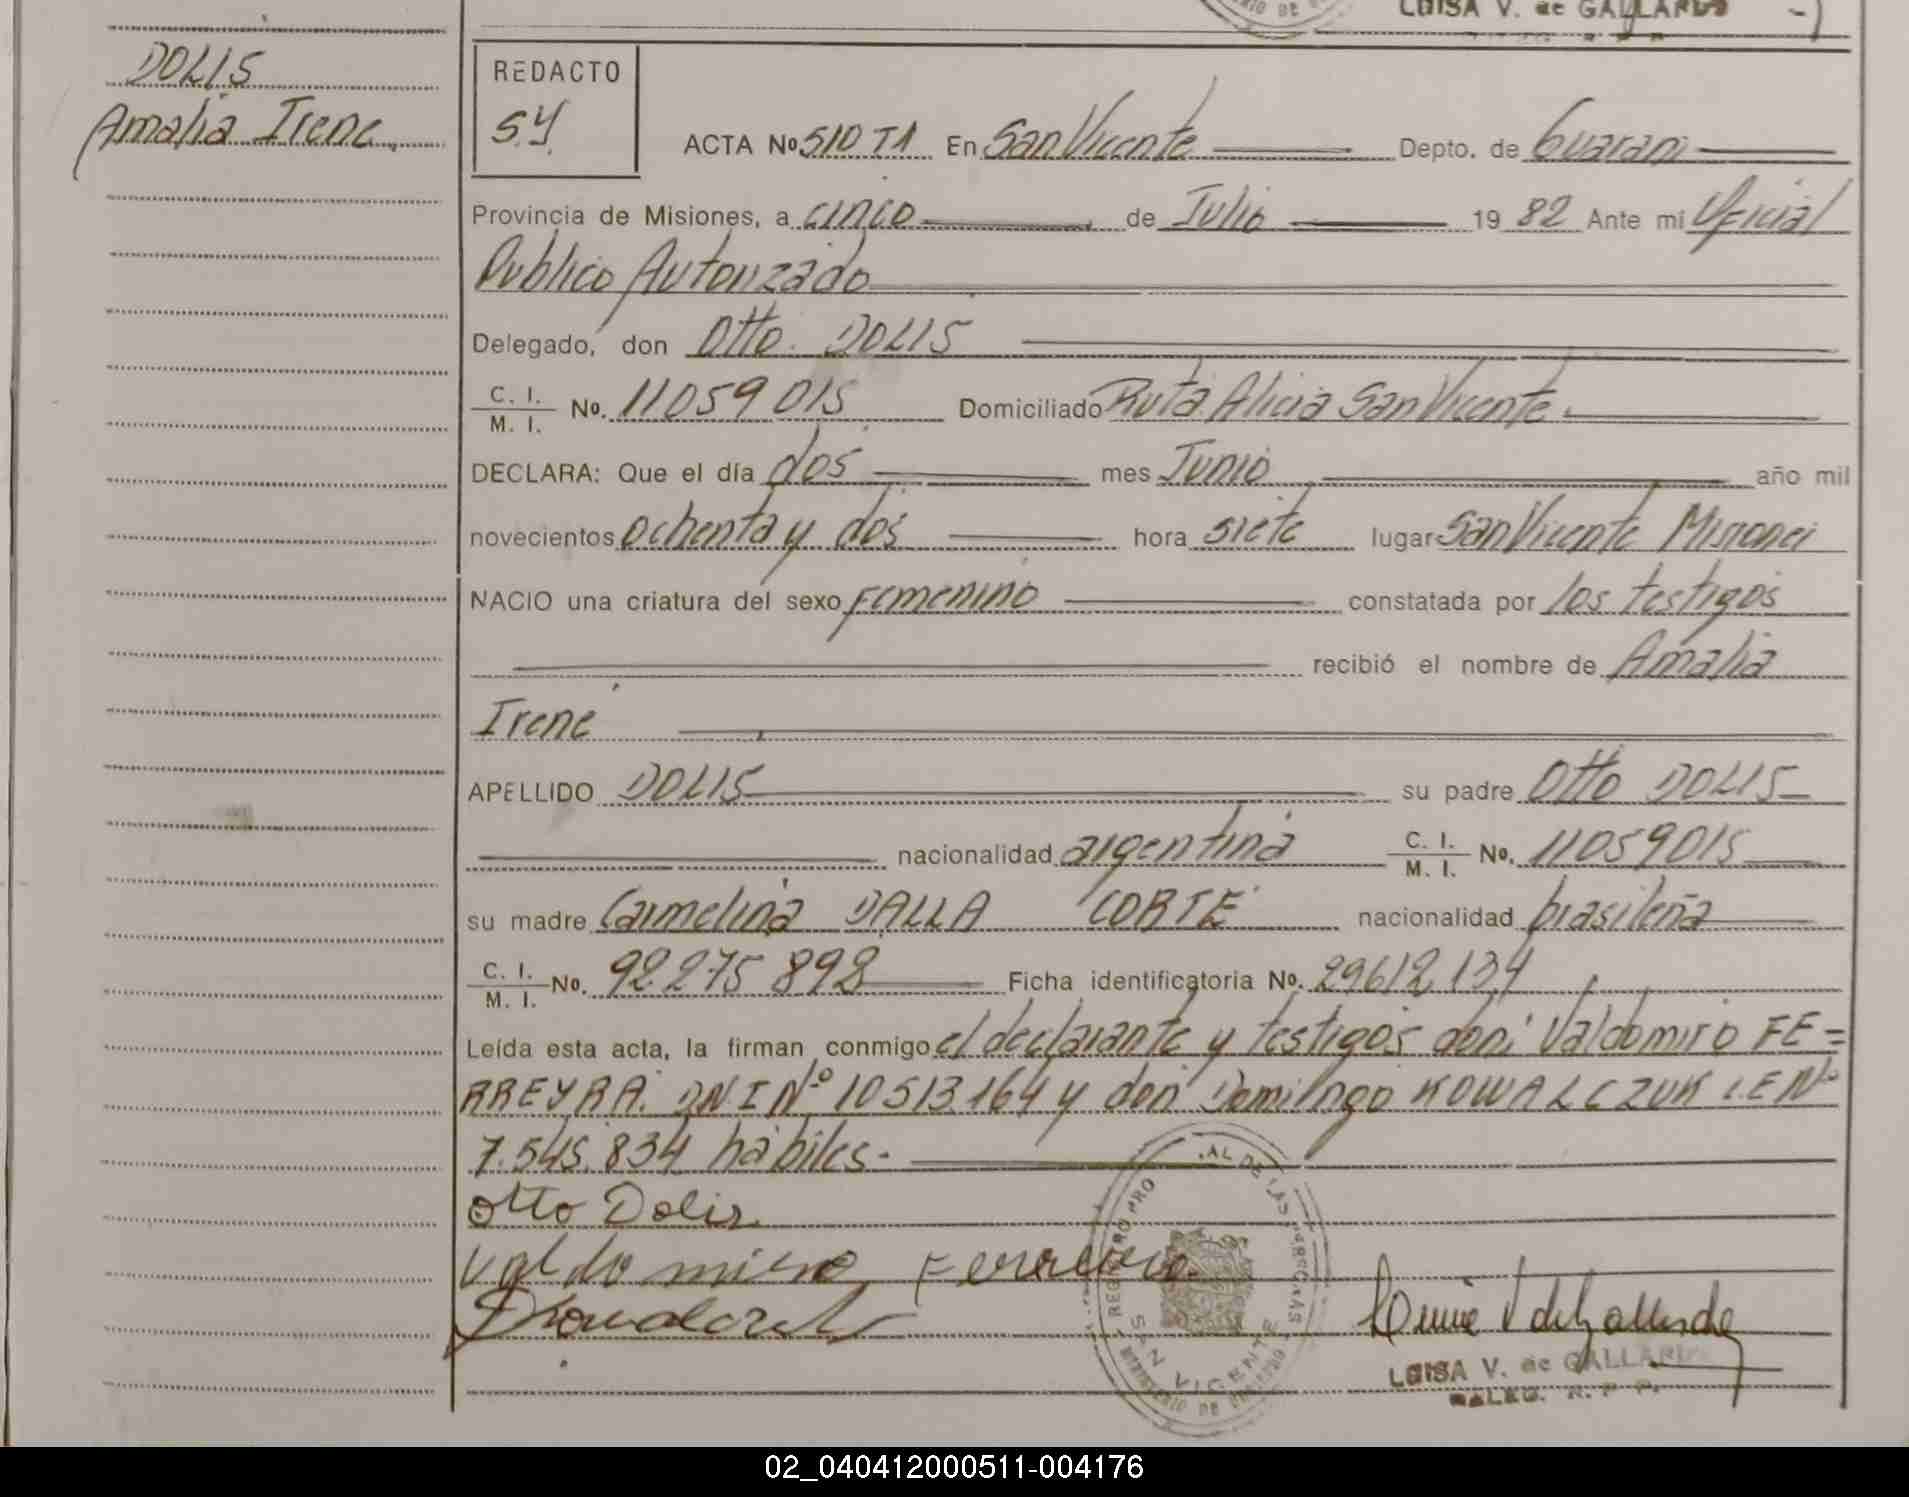 LUISA V. de GALLARDO
DOLIS
Amalia Irene.
REDACTO
S.Y.
ACTA Nº 510 T1 En San Vicente Depto. de Guarani
Provincia de Misiones, a cinco de Julio 19 82 Ante mi Oficial
Publico Autorizado
Delegado, don Otto DOLIS
C. I.
M. I. Nº. 11059015 Domiciliado Ruta Alicia San Vicente.
DECLARA: Que el día dos mes Junio año mil
novecientos ochenta y dos hora siete lugar San Vicente Misiones
NACIO una criatura del sexo femenino constatada por los testigos
recibió el nombre de Amalia
Irene
APELLIDO DOLIS su padre Otto DOLIS
nacionalidad argentina C. I.
M. I. Nº. 11059015
su madre Carmelina DALLA CORTE nacionalidad brasileña
C. I.
M. I. Nº. 92 275 892 Ficha identificatoria Nº. 29612.134
Leída esta acta, la firman conmigo el declarante y testigos don: Valdomiro FE=
RREYRA. DNI Nº 10513.164 y don Domingo KOWALCZUK L.E Nº
7.545.834 hábiles.
Otto Dolis
Valdomiro Ferreira
REGISTRO PRO AL DE LAS PERSONAS
SAN VICENTE
MINISTERIO DE GOBIERNO
LUISA V. de GALLARDO
DALEG. R. P. P.
02_040412000511-004176